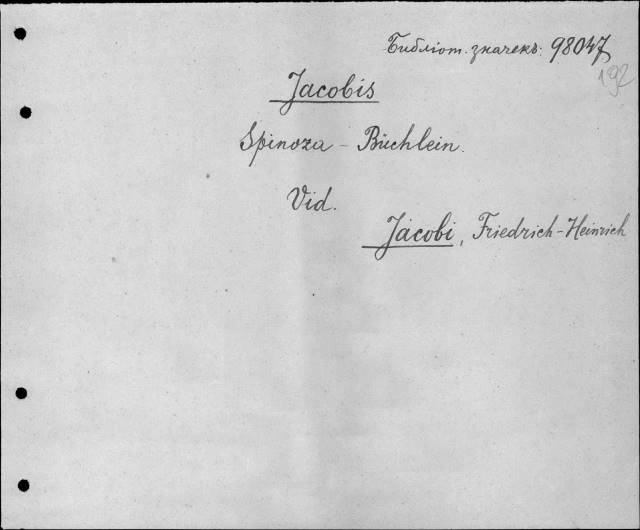 Библіот. значекъ: 98047
192
Jacobis
Spinoza - Büchlein.
Vid.
Jacobi, Friedrich-Heinrich